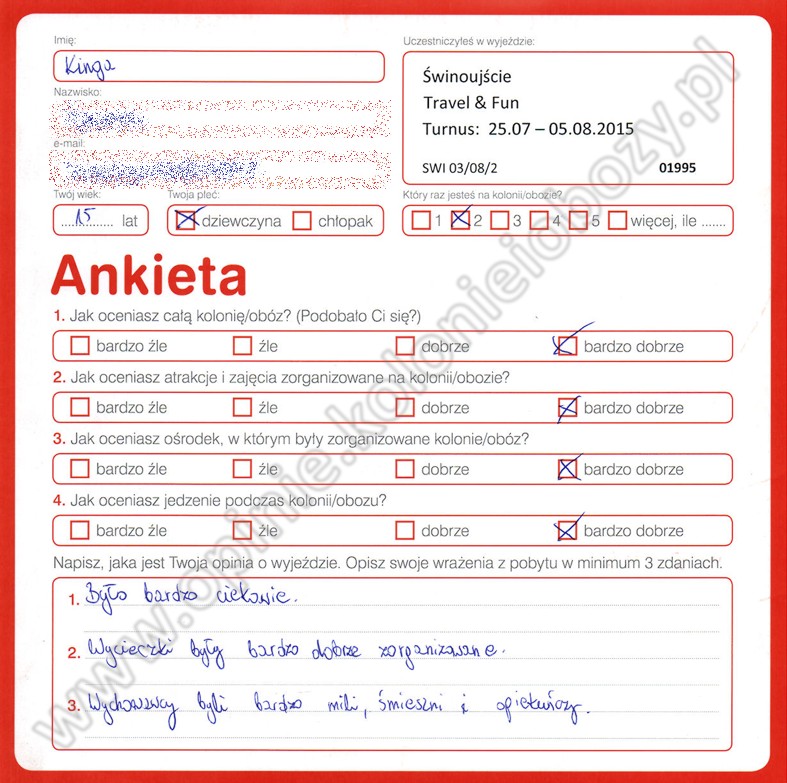 Imię:
Kinga
Nazwisko:
e-mail:
Twój wiek:
15 lat
Twoja płeć:
dziewczyna chłopak
Uczestniczyłeś w wyjeździe:
Świnoujście
Travel & Fun
Turnus: 25.07 – 05.08.2015
SWI 03/08/2 01995
Który raz jesteś na kolonii/obozie?
1 2 3 4 5 więcej, ile .......
Ankieta
1. Jak oceniasz całą kolonię/obóz? (Podobało Ci się?)
bardzo źle źle dobrze bardzo dobrze
2. Jak oceniasz atrakcje i zajęcia zorganizowane na kolonii/obozie?
bardzo źle źle dobrze bardzo dobrze
3. Jak oceniasz ośrodek, w którym były zorganizowane kolonie/obóz?
bardzo źle źle dobrze bardzo dobrze
4. Jak oceniasz jedzenie podczas kolonii/obozu?
bardzo źle źle dobrze bardzo dobrze
Napisz, jaka jest Twoja opinia o wyjeździe. Opisz swoje wrażenia z pobytu w minimum 3 zdaniach.
1. Było bardzo ciekawie.
2. Wycieczki były bardzo dobrze zorganizowane.
3. Wychowawcy byli bardzo mili, śmieszni i opiekuńczy.
www.opinie.kolonieiobozy.pl